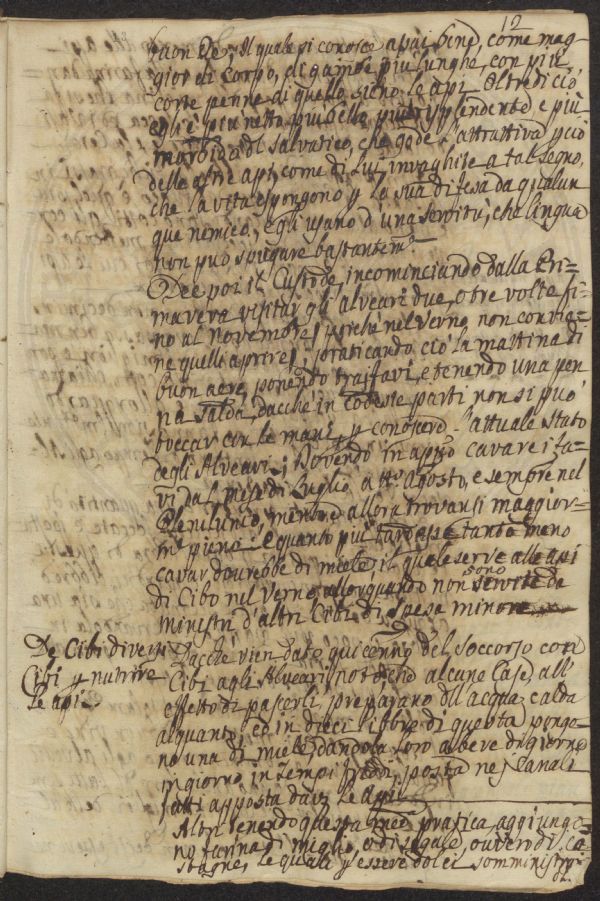 12
buon Re, Il quale si conosce assai bene, come mag=
gior di corpo, di gambe più lunghe, con più
corte penne di quello sieno le api. Oltre di ciò
egli è più netto più bello più risplendente e più
morbido del salvatico, che gode l'attrattiva p ciò
delle altre api, come di Lui invaghite a tal segno,
che la vita espongono p la sua difesa da qualun
que nemico, e gli usano d'una servitù, che lingua
non può spiegare bastantemte
Dee poi il Custode, incominciando dalla Pri=
mavera visitar gli alveari due, o tre volte fi=
no al Novembre, poiché nel Verno non convie=
ne quelli aprire, praticando ciò la mattina di
buon aere, ponendo tra i favi, e tenendo una pen
na salda, dacché in codeste parti non si può
toccar con le mani, p conoscere l'attuale stato
degli Alveari; Dovendo in appo cavare i fa=
vi dal mese di Luglio, a tto Agosto, e sempre nel
Plenilunio, mentre allora trovansi maggior=
mte pieni: e quanto più tardasse tanto meno
cavar dovrebbe di miele, il quale serve alle api
di Cibo nel Verno, allorquando non sono servite da
ministri d'altri Cibi di spesa minore
De Cibi diversi
Cibi p nutrire
le api.
Dacché vien dato qui cenno del soccorso con
Cibi agli Alveari notätemi alcune Case, all'
effetto di pascerli, preparano dell'acqua calda
alquanto, ed in dieci libbre di questa pongo=
no una di miele, dandola loro a bere di giorno
in giorno in tempi freddi, posta nei Canali
fatti apposta davti le Api
Altri tenendo questa pratica, aggiungo=
no farina di miglio, o di segale, ovver di ca=
stagne, le quali p essere dolci somministra